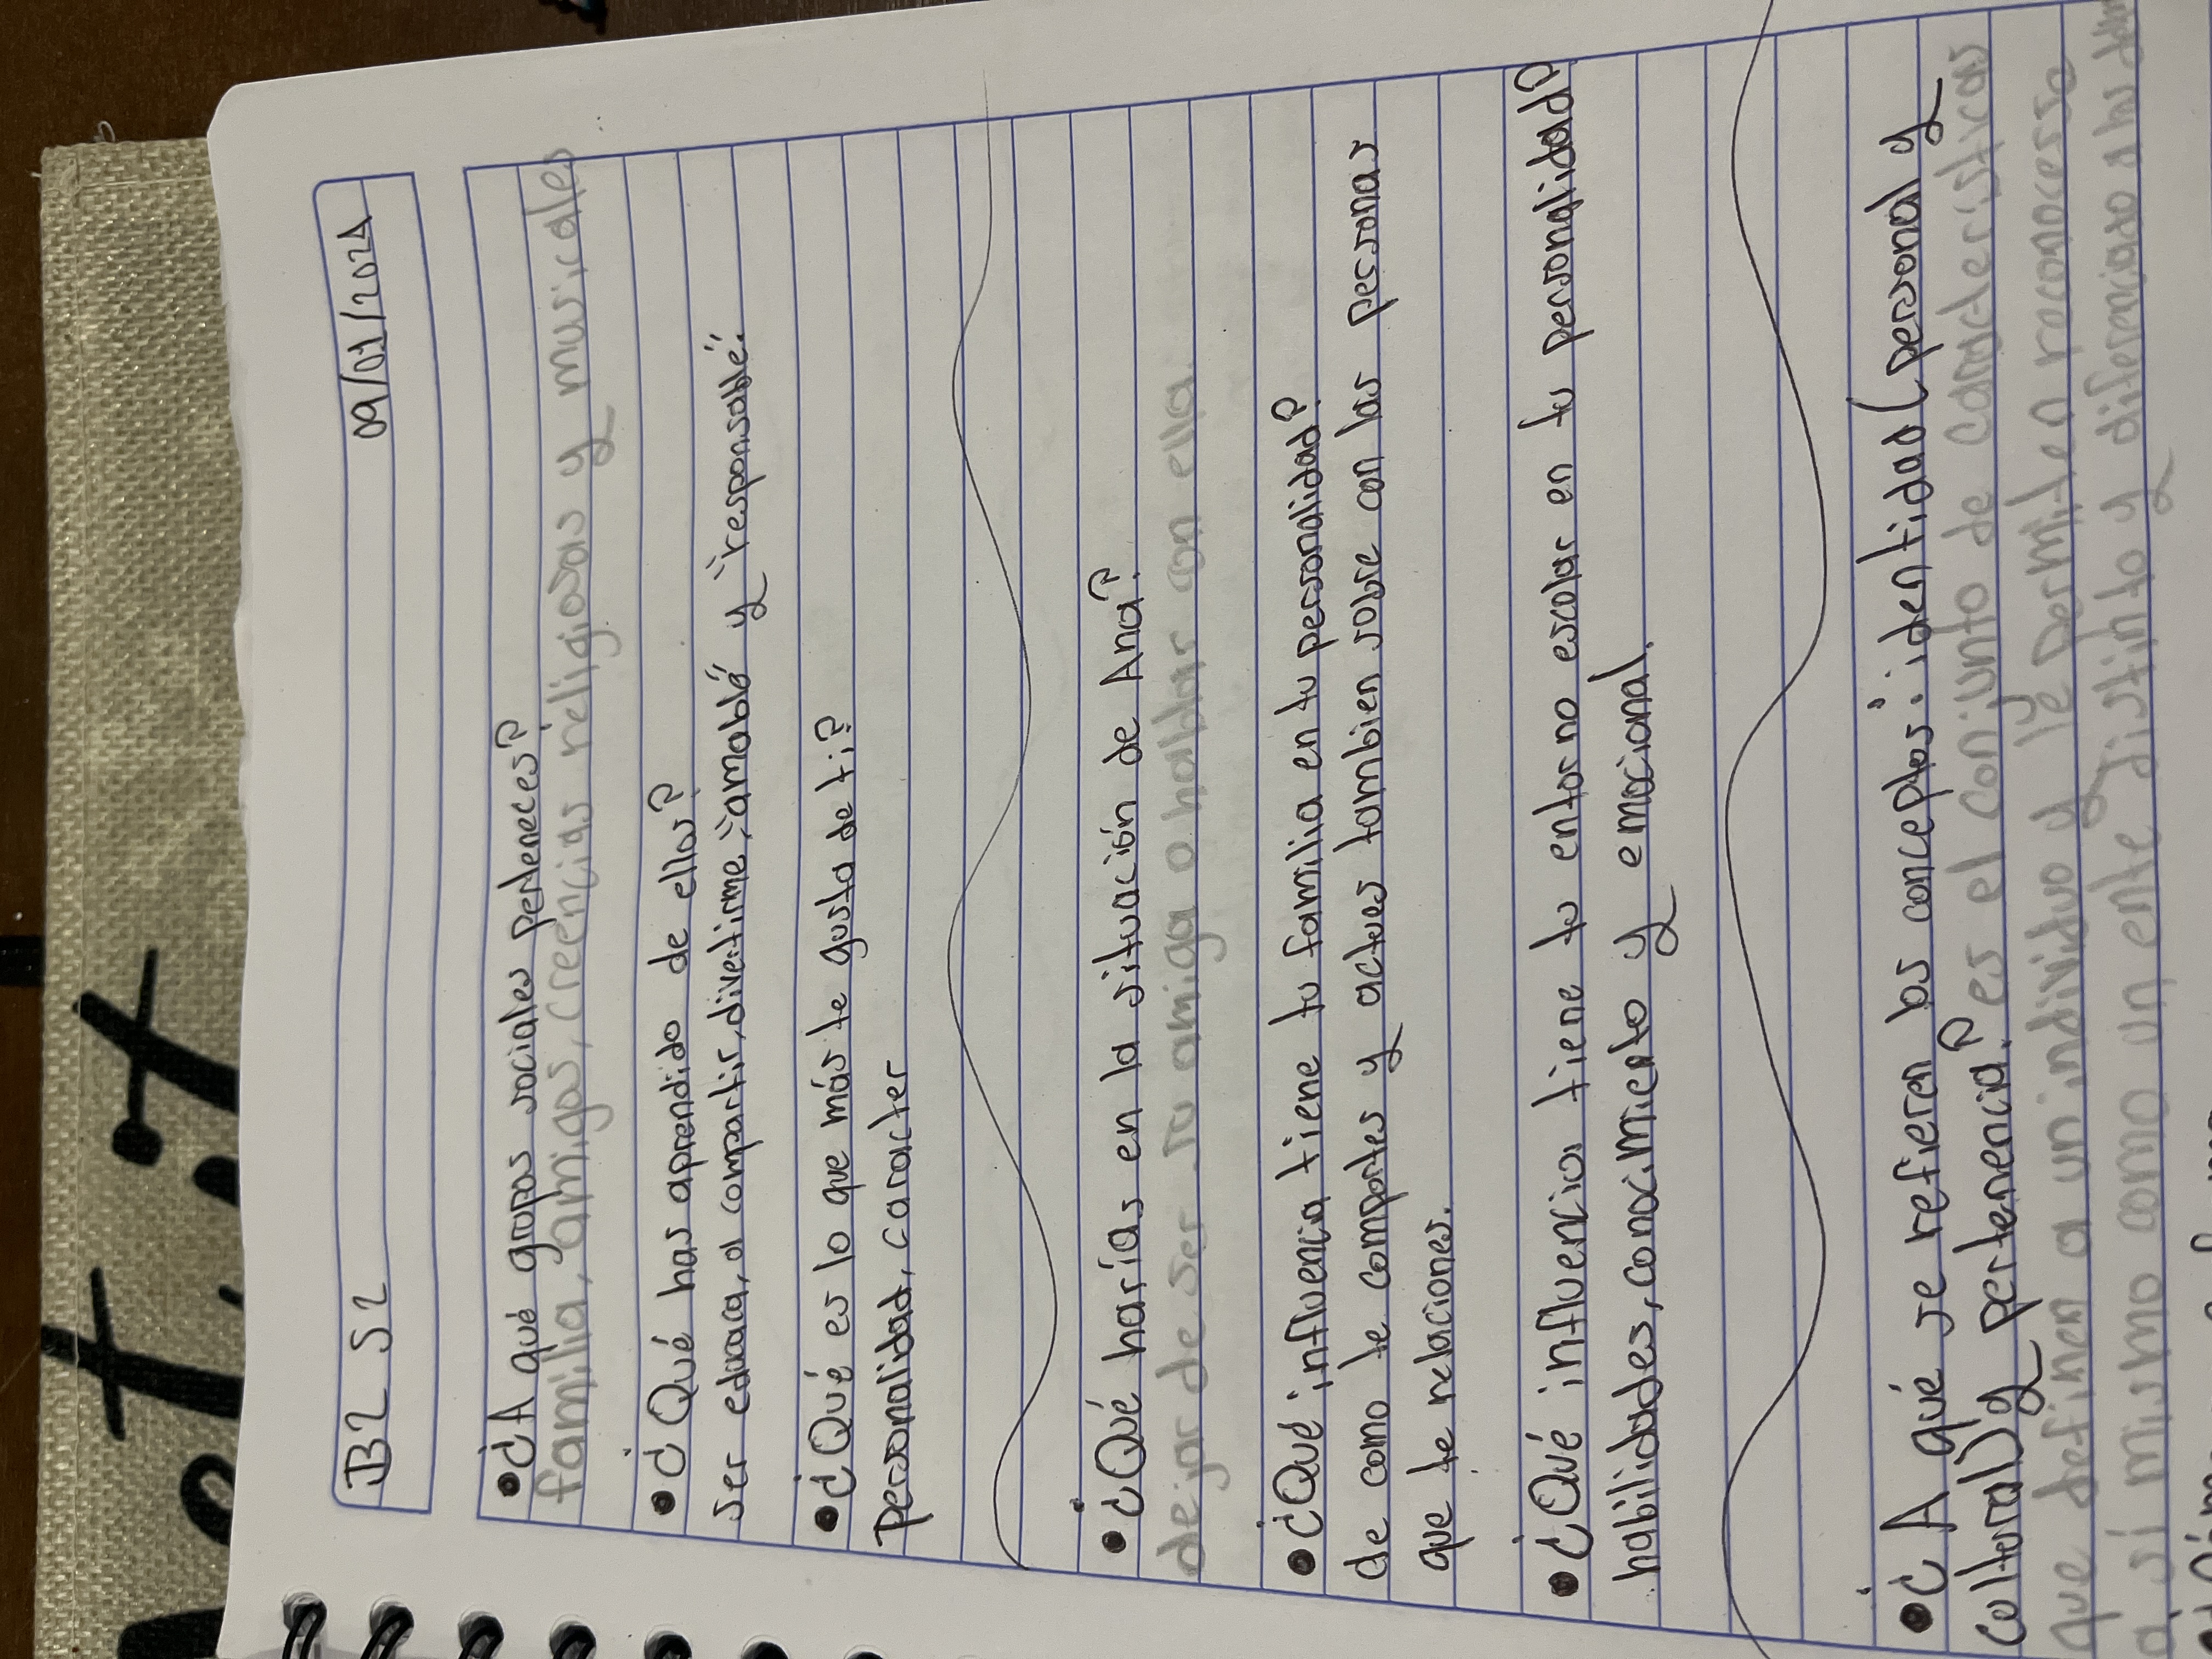 B2 S2 09/01/2024
• ¿A qué grupos sociales perteneces?
familia, amigos, creencias religiosas y musicales
• ¿Qué has aprendido de ellos?
ser educaca, a compartir, divertirme, "amoblé" y "responsablé".
• ¿Qué es lo que más te gusta de ti?
Personalidad, caracter
• ¿Qué harías en la situación de Ana?
dejar de ser su amiga o hablar con ella.
• ¿Qué influencia tiene tu familia en tu personalidad?
de como te comportes y actues tambien sobre con las personas
que te relaciones.
• ¿Qué influencia tiene tu entorno escolar en tu personalidad?
habilidades, conocimiento y emocional.
• ¿A qué se refieren los conceptos: identidad (personal y
cultural) y pertenencia? es el conjunto de caracteristicas
que definen a un individuo y le permiten reconocerse
a sí mismo como un ente distinto y diferenciado a los